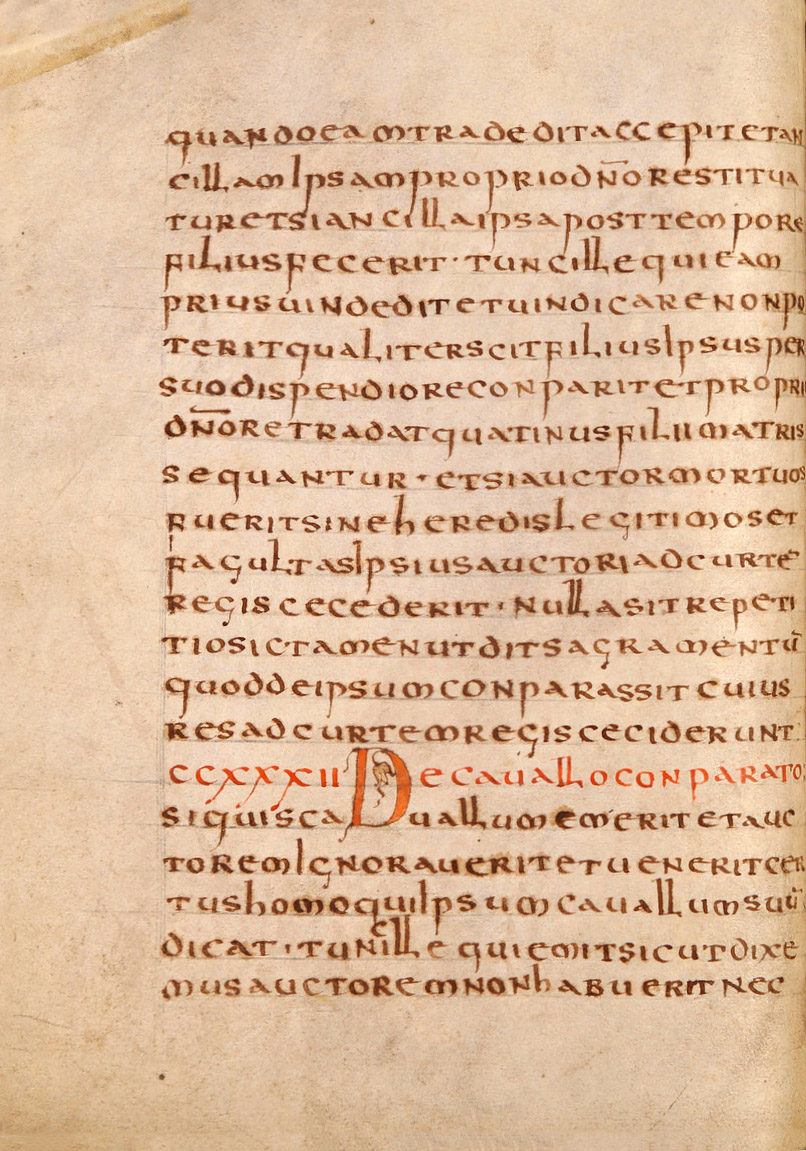 quando ea mtradedit accepit et an
cillam ipsam proprio dn̄o restitua
tur et si ancilla ipsa post tempore
filius fecerit · tunc ille qui eam
prius uindedit et uindicare non po
terit qualiter scit filius ipsus per
suo dispendio reconparit et propri
dn̄o retradat quatinus filii matris
sequantur · et si auctor mortuos
fuerit sine heredis legitimos et
facultas ipsius auctori ad curte
regis cecederit · nulla sit repeti
tio sic tamen ut dit sagramentū
quod de ipsum conparassit cuius
res ad curtem regis ceciderunt
CCXXXII De cauallo conparato
si quis cauallum emerit et auc
torem ignorauerit et uenerit cer
tus homo qui ipsum cauallum suū
dicat · tunc ille qui emit sicut dixe
mus auctorem non habuerit nec